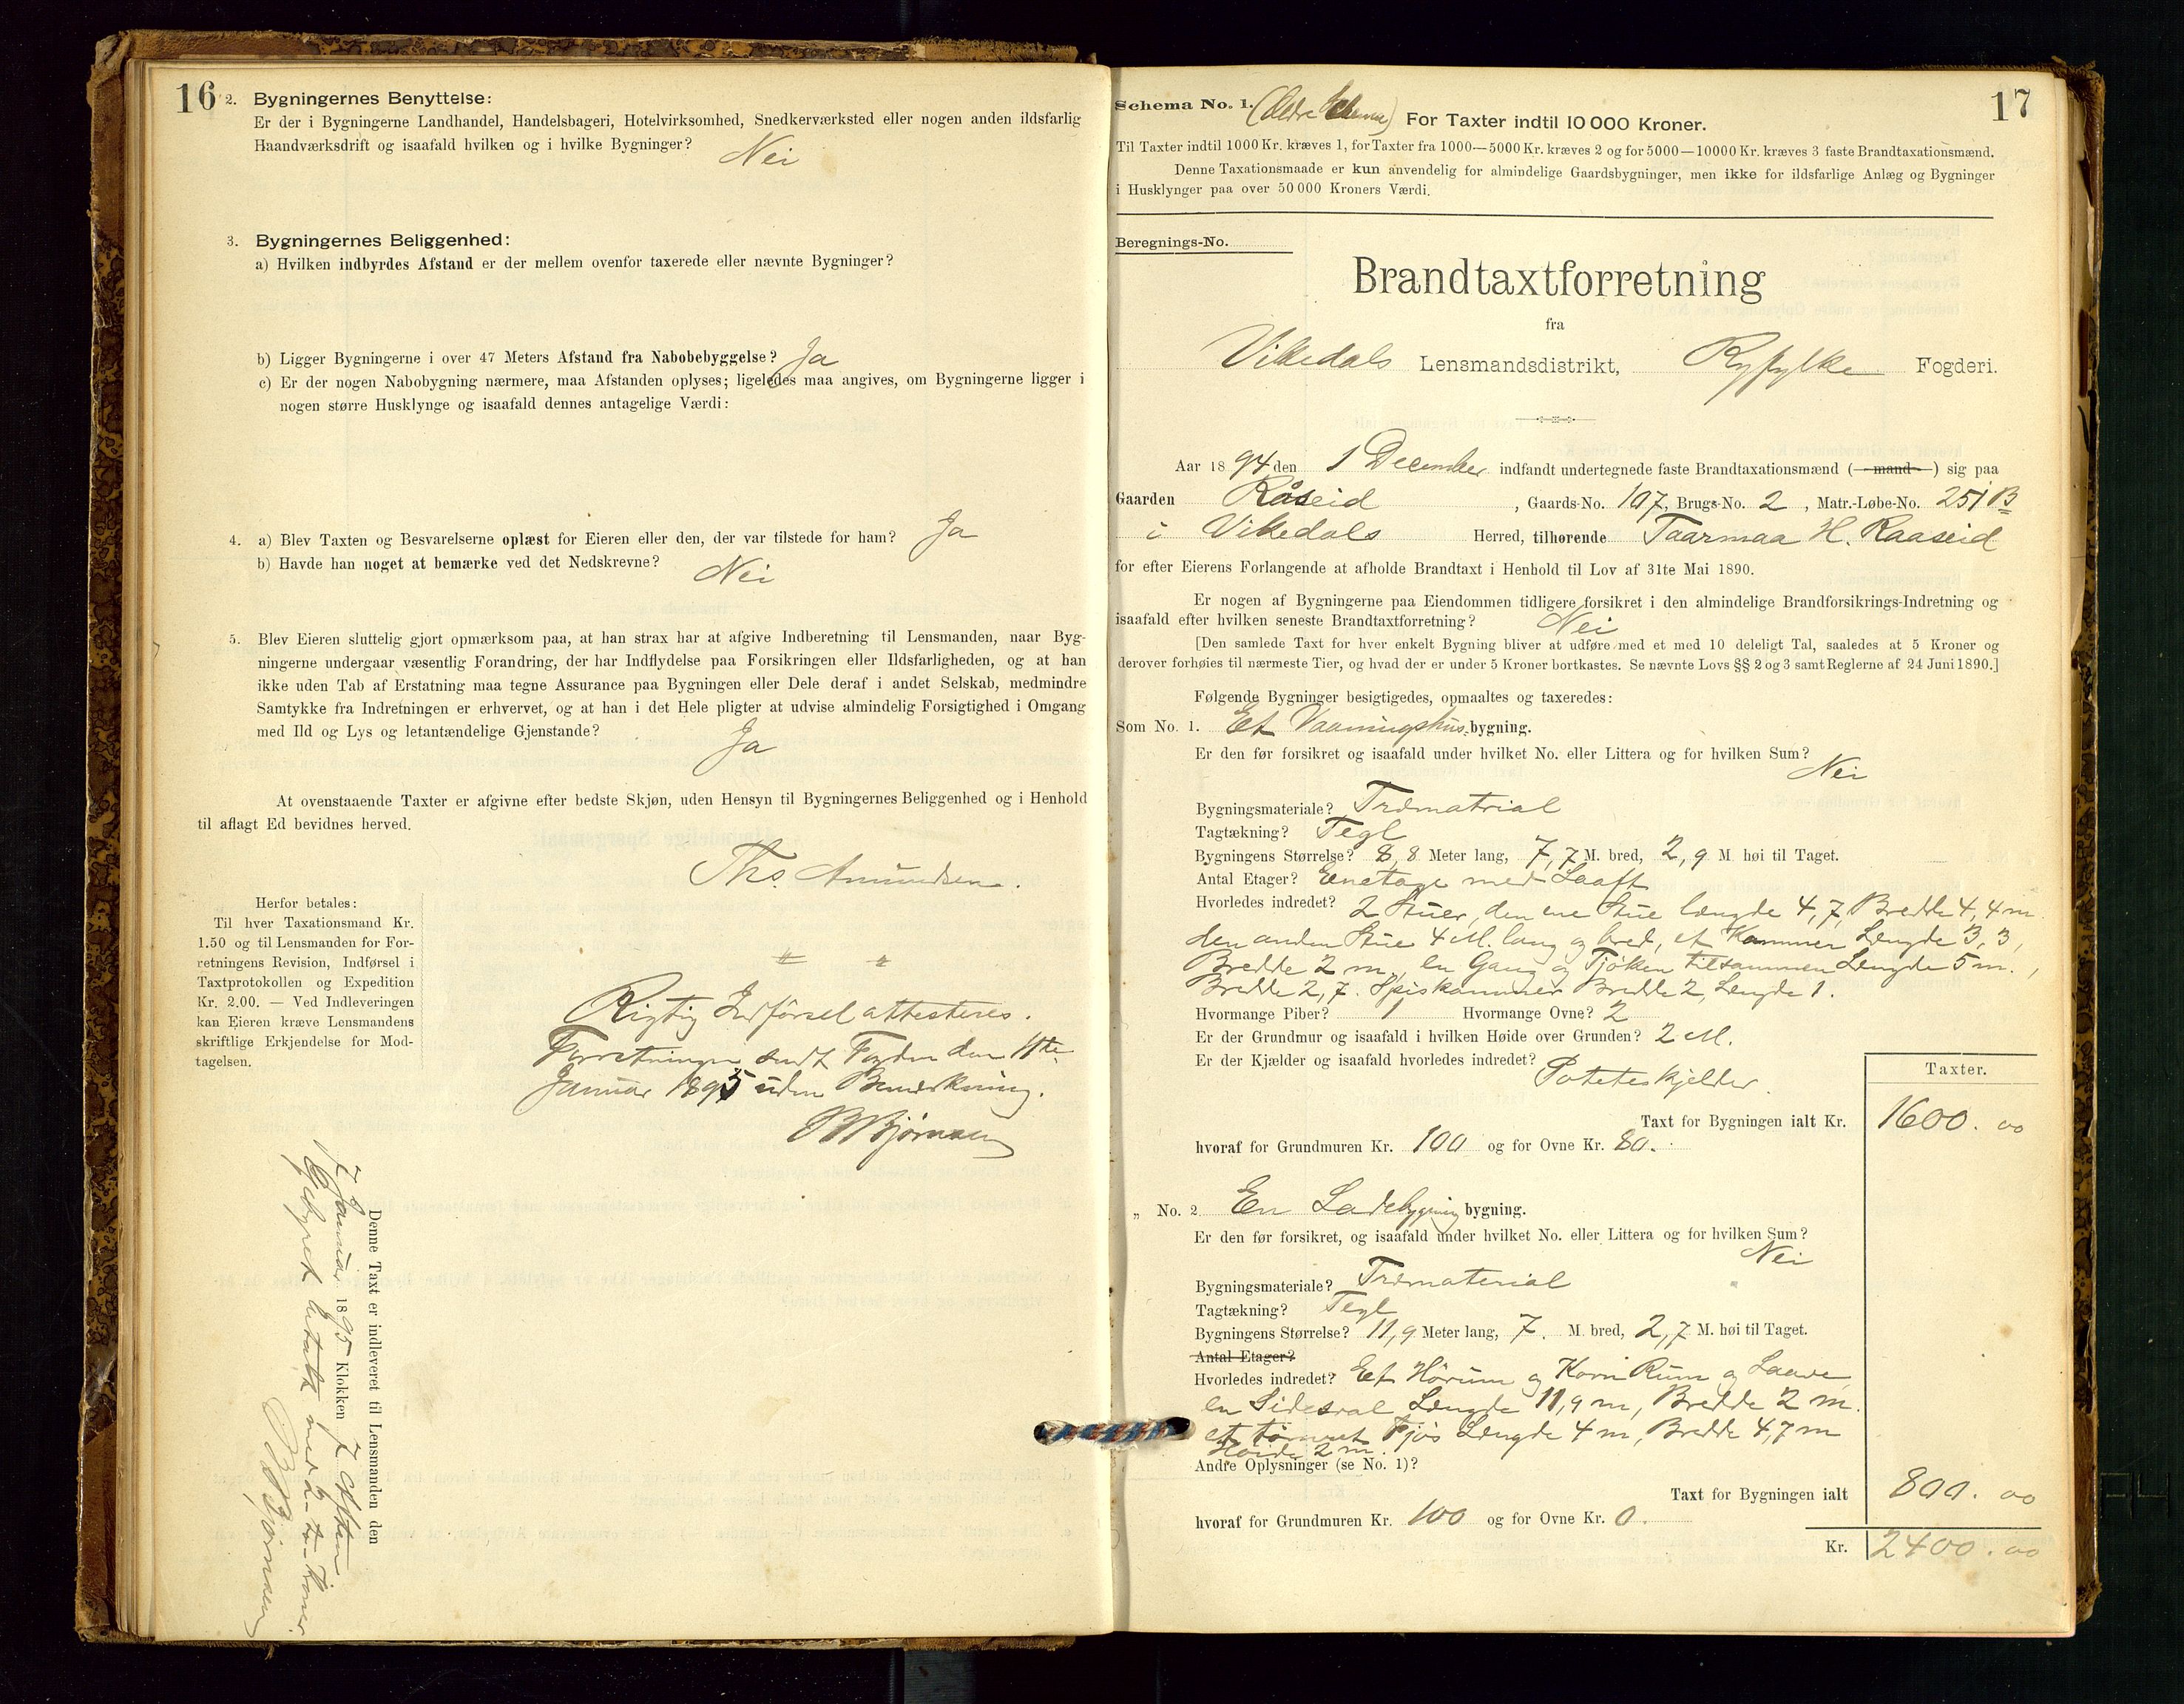 16
2. Bygningernes Benyttelse:
Er der i Bygningerne Landhandel, Handelsbageri, Hotelvirksomhed, Snedkerværksted eller nogen anden ildsfarlig
Haandværksdrift og isaafald hvilken og i hvilke Bygninger? Nei
3. Bygningernes Beliggenhed:
a) Hvilken indbyrdes Afstand er der mellem ovenfor taxerede eller nævnte Bygninger?
b) Ligger Bygningerne i over 47 Meters Afstand fra Nabobebyggelse? Ja
c) Er der nogen Nabobygning nærmere, maa Afstanden oplyses; ligeledes maa angives, om Bygningerne ligger i
nogen større Husklynge og isaafald dennes antagelige Værdi:
4. a) Blev Taxten og Besvarelserne oplæst for Eieren eller den, der var tilstede for ham? Ja
b) Havde han noget at bemærke ved det Nedskrevne? Nei
5. Blev Eieren sluttelig gjort opmærksom paa, at han strax har at afgive Indberetning til Lensmanden, naar Byg-
ningerne undergaar væsentlig Forandring, der har Indflydelse paa Forsikringen eller Ildsfarligheden, og at han
ikke uden Tab af Erstatning maa tegne Assurance paa Bygningen eller Dele deraf i andet Selskab, medmindre
Samtykke fra Indretningen er erhvervet, og at han i det Hele pligter at udvise almindelig Forsigtighed i Omgang
med Ild og Lys og letantændelige Gjenstande? Ja
At ovenstaaende Taxter er afgivne efter bedste Skjøn, uden Hensyn til Bygningernes Beliggenhed og i Henhold
til aflagt Ed bevidnes herved.
Ths. Amundsen.
Herfor betales:
Til hver Taxationsmand Kr.
1.50 og til Lensmanden for For-
retningens Revision, Indførsel i
Taxtprotokollen og Expedition
Kr. 2.00. — Ved Indleveringen
kan Eieren kræve Lensmandens
skriftlige Erkjendelse for Mod-
tagelsen.
Rigtig Indførsel attesteres.
Forretningen sendt Fogden den 11te
Januar 1895 uden Bemerkning.
B Bjørnsen
Denne Taxt er indleveret til Lensmanden den
7 Januar 1895 Klokken 7 Aften
Gebyret betalt med to Kroner.
B Bjørnsen
17
Schema No. 1. (Ældre Schema) For Taxter indtil 10 000 Kroner.
Til Taxter indtil 1000 Kr. kræves 1, for Taxter fra 1000—5000 Kr. kræves 2 og for 5000—10000 Kr. kræves 3 faste Brandtaxationsmænd.
Denne Taxationsmaade er kun anvendelig for almindelige Gaardsbygninger, men ikke for ildsfarlige Anlæg og Bygninger
i Husklynger paa over 50 000 Kroners Værdi.
Beregnings-No.
Brandtaxtforretning
fra
Vikedals Lensmandsdistrikt, Ryfylke Fogderi.
Aar 1894 den 1 December indfandt undertegnede faste Brandtaxationsmænd (mand) sig paa
Gaarden Raaseid, Gaards-No. 107, Brugs-No. 2, Matr.-Løbe-No. 251 B
i Vikedals Herred, tilhørende Taarmaa H. Raaseid
for efter Eierens Forlangende at afholde Brandtaxt i Henhold til Lov af 31te Mai 1890.
Er nogen af Bygningerne paa Eiendommen tidligere forsikret i den almindelige Brandforsikrings-Indretning og
isaafald efter hvilken seneste Brandtaxtforretning? Nei
[Den samlede Taxt for hver enkelt Bygning bliver at udføre med et med 10 deleligt Tal, saaledes at 5 Kroner og
derover forhøies til nærmeste Tier, og hvad der er under 5 Kroner bortkastes. Se nævnte Lovs §§ 2 og 3 samt Reglerne af 24 Juni 1890.]
Følgende Bygninger besigtigedes, opmaaltes og taxeredes:
Som No. 1. Et Vaaningshus bygning.
Er den før forsikret og isaafald under hvilket No. eller Littera og for hvilken Sum? Nei
Bygningsmateriale? Træmatrial
Tagtækning? Tegl
Bygningens Størrelse? 8,8 Meter lang, 7,7 M. bred, 2,9 M høi til Taget.
Antal Etager? Enetage med Laaft
Hvorledes indredet? 2 Stuer, den ene Stue længde 4,7, Bredde 4,4 m.
den anden Stue 4 M. lang og bred, et Kammer Længde 3,3,
Bredde 2 m., en Gang og Tjøken tilsammen Længde 5 m.,
Bredde 2,7. Spiskammer Bredde 2, Længde 1.
Hvormange Piber? 1 Hvormange Ovne? 2
Er der Grundmur og isaafald i hvilken Høide over Grunden? 2 M.
Er der Kjælder og isaafald hvorledes indredet? Poteteskjelder.
Taxter.
Taxt for Bygningen ialt Kr. 1600. 00
hvoraf for Grundmuren Kr. 100 og for Ovne Kr. 80.
„ No. 2 En Ladebygning bygning.
Er den før forsikret, og isaafald under hvilket No. eller Littera og for hvilken Sum? Nei
Bygningsmateriale? Træmaterial
Tagtækning? Tegl
Bygningens Størrelse? 11,9 Meter lang, 7. M. bred, 2,7 M. høi til Taget.
Antal Etager?
Hvorledes indredet? Et Hørum og Korn Rum og Laave
en Sidesval Længde 11,9 m, Bredde 2 m.
et tømret Fjøs Længde 4 m, Bredde 4,7 m
Høide 2 m.
Andre Oplysninger (se No. 1)?
Taxt for Bygningen ialt 800. 00
hvoraf for Grundmuren Kr. 100 og for Ovne Kr. 0.
Kr. 2400. 00